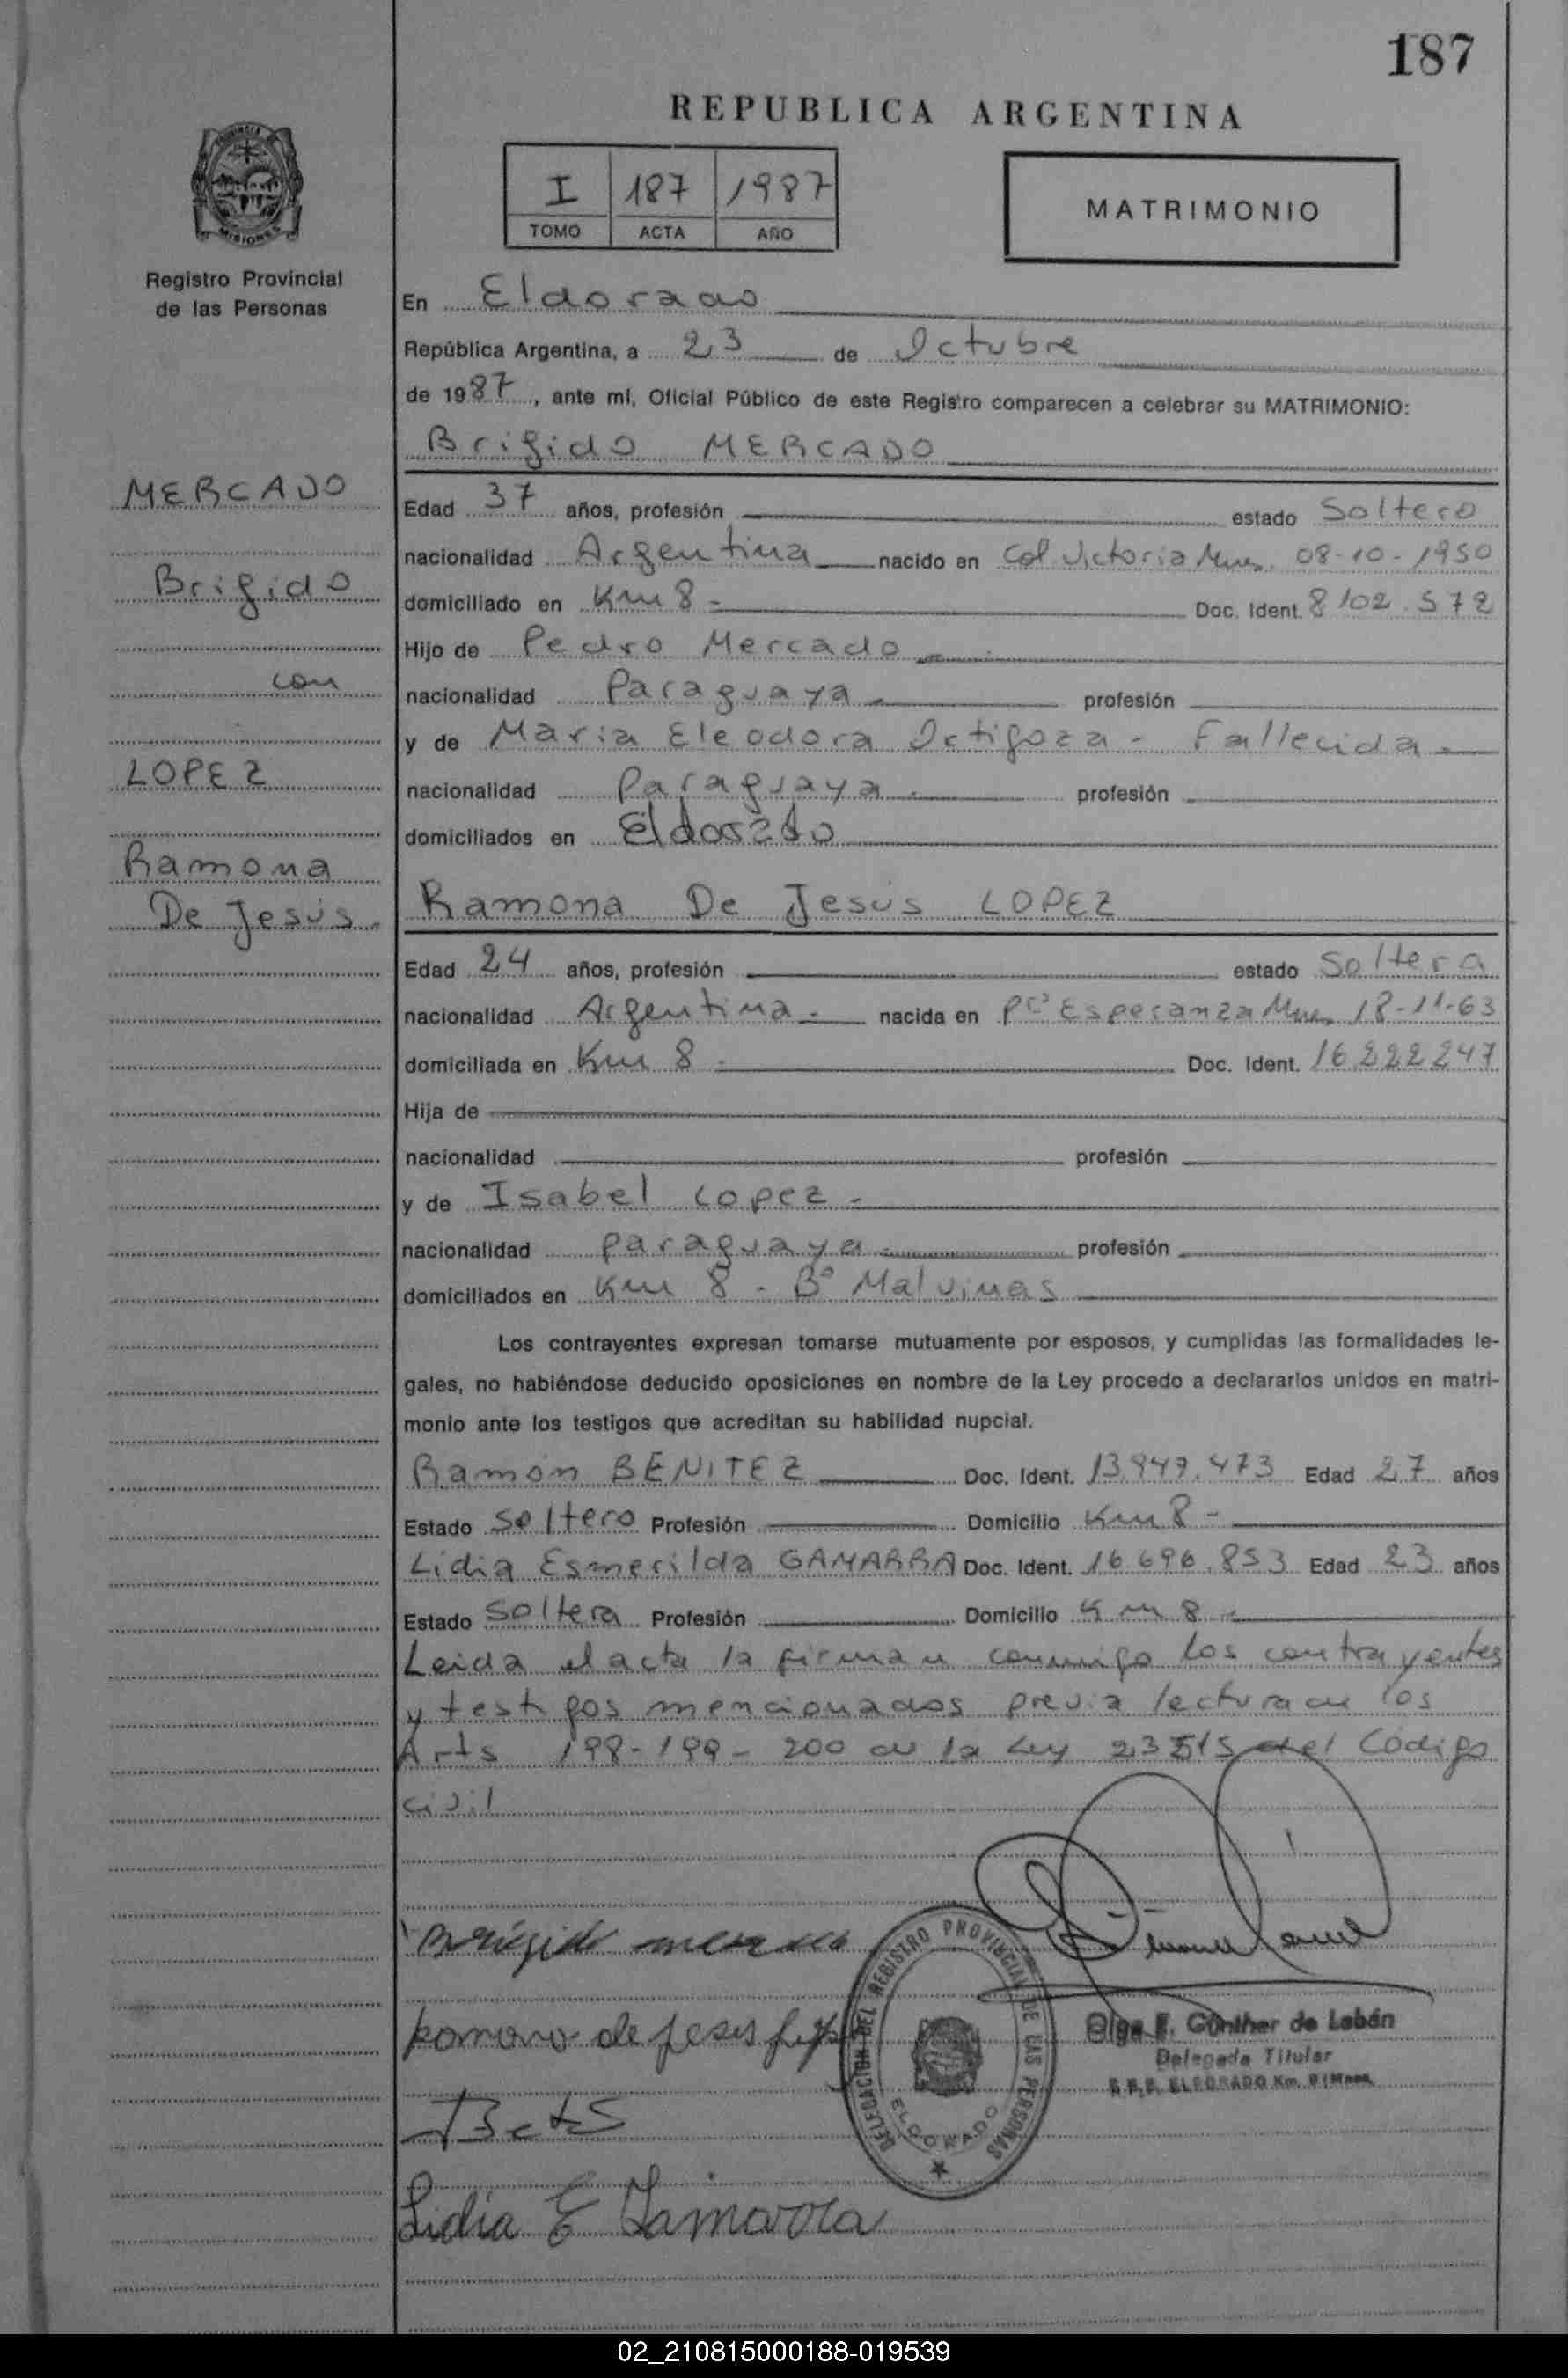 187
REPUBLICA ARGENTINA
I 187 1987
TOMO ACTA AÑO
MATRIMONIO
PROVINCIA
MISIONES
Registro Provincial
de las Personas
En Eldorado
República Argentina, a 23 de Octubre
de 1987, ante mí, Oficial Público de este Registro comparecen a celebrar su MATRIMONIO:
Brigido MERCADO
MERCADO
Brigido
con
LOPEZ
Ramona
De Jesús.
Edad 37 años, profesión estado Soltero
nacionalidad Argentina nacido en Col Victoria Mnes. 08-10-1950
domiciliado en Km 8- Doc. Ident. 8102.572
Hijo de Pedro Mercado
nacionalidad Paraguaya profesión
y de Maria Eleodora Ortigoza - Fallecida
nacionalidad Paraguaya profesión
domiciliados en Eldorado
Ramona De Jesus LOPEZ
Edad 24 años, profesión estado Soltera
nacionalidad Argentina.- nacida en Pto Esperanza Mnes 18-11-63
domiciliada en Km 8 - Doc. Ident. 16.222.247
Hija de
nacionalidad profesión
y de Isabel Lopez -
nacionalidad paraguaya profesión
domiciliados en Km 8 - Bº Malvinas
Los contrayentes expresan tomarse mutuamente por esposos, y cumplidas las formalidades le-
gales, no habiéndose deducido oposiciones en nombre de la Ley procedo a declararlos unidos en matri-
monio ante los testigos que acreditan su habilidad nupcial.
Ramón BENITEZ Doc. Ident. 13.947.473 Edad 27 años
Estado Soltero Profesión Domicilio Km 8 -
Lidia Esmerilda GAMARRA Doc. Ident. 16.696.853 Edad 23 años
Estado Soltera Profesión Domicilio Km 8 -
Leida el acta la firman conmigo los contrayentes
y testigos mencionados previa lectura de los
Arts 198-199-200 de la Ley 23515 del Código
civil
Brígido mercado
Ramona de Jesus Lopez
DELEGACION DEL REGISTRO PROVINCIAL DE LAS PERSONAS
ELDORADO
Olga F. Günther de Labán
Delegada Titular
ELDORADO Km.
Lidia E Gamarra
02_210815000188-019539